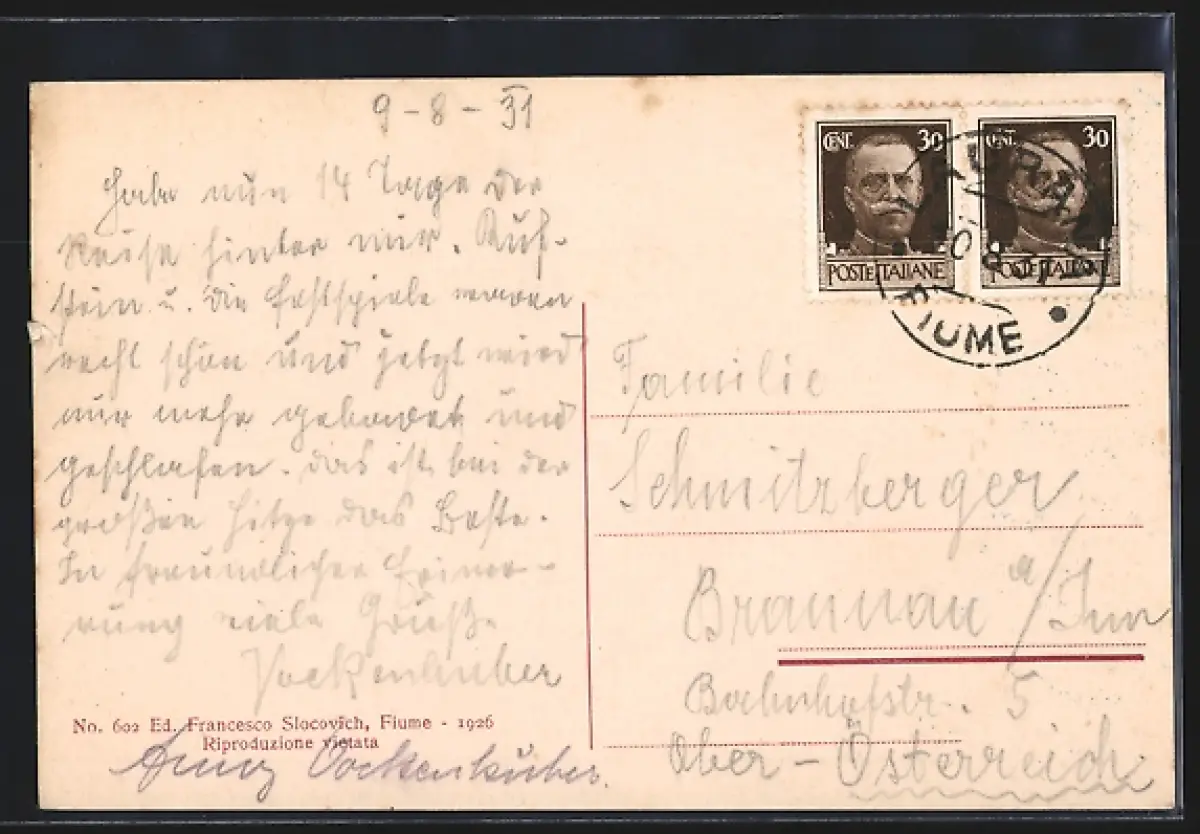 9-8-31
Habe nun 14 Tage der
Reise hinter mir. Kuf-
stein u. die Festspiele waren
recht schön und jetzt wird
nur mehr gebadet und
geschlafen. das ist bei der
großen Hitze das Beste.
In freundlicher Erinne-
rung viele Grüße
Vockenhuber
No. 602 Ed. Francesco Slocovich, Fiume - 1926
Riproduzione vietata
Vockenhuber.
CENT. 30
POSTE ITALIANE
CENT. 30
POSTE ITALIANE
FIUME
Familie
Schmitzberger
Braunau a/Inn
Bahnhofstr. 5
Ober-Österreich